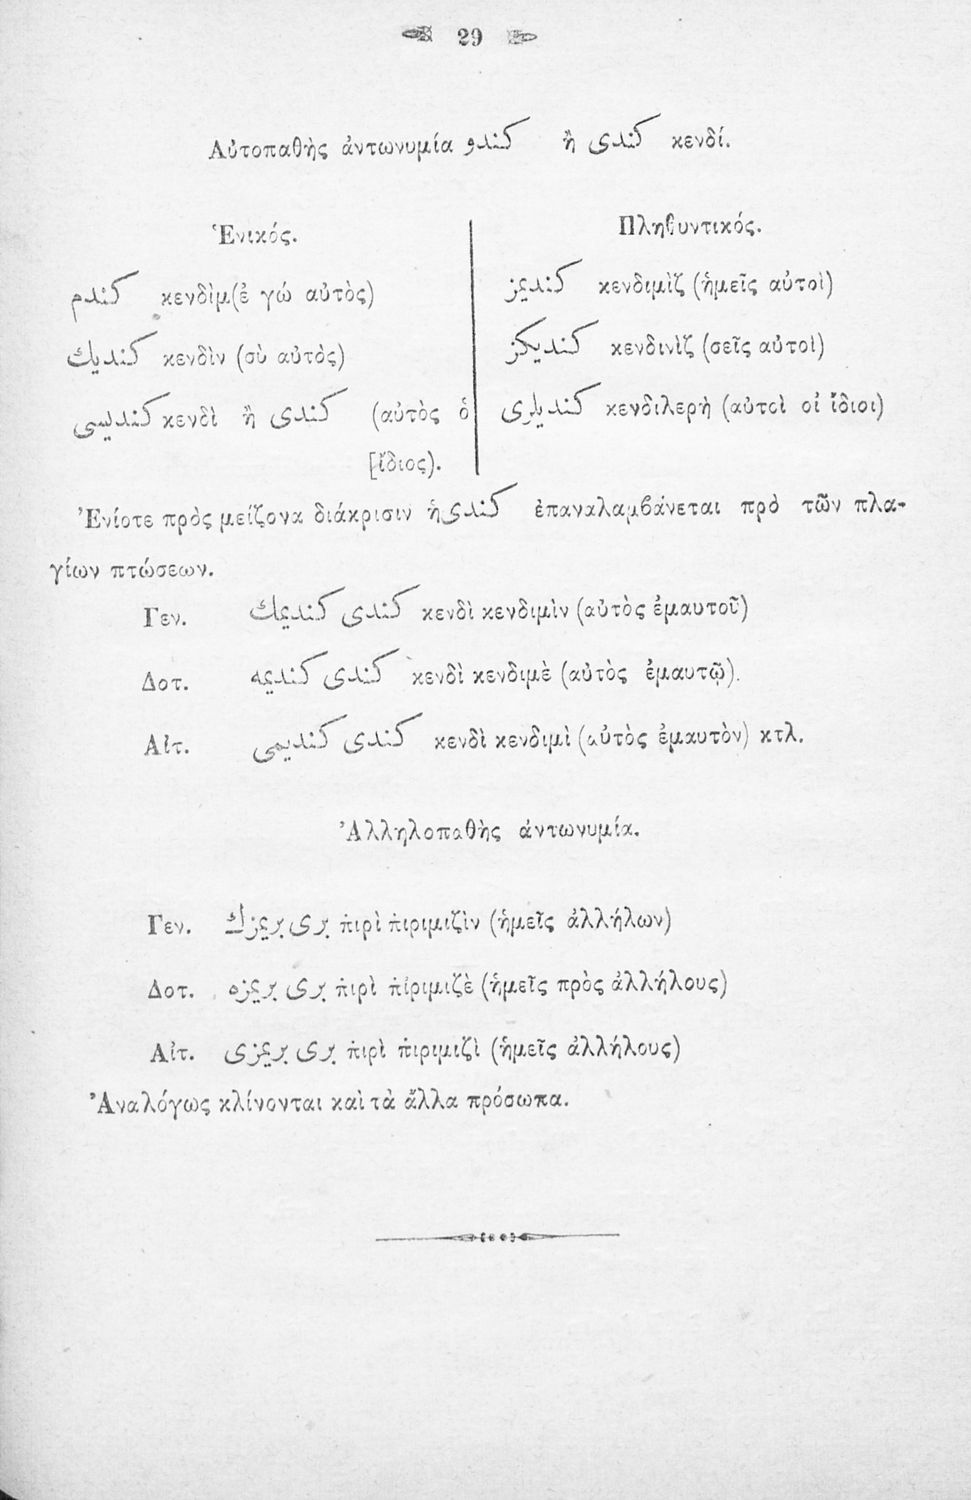 29
Αὐτοπαθὴς ἀντωνυμία كندو ἢ كندى κενδί.
Ἑνικός.
كندم κενδὶμ(ἐ γώ αὐτὸς)
كنديك κενδὶν (σὺ αὐτὸς)
كنديسى κενδὶ ἢ كندى (αὐτὸς ὁ
[ἴδιος).
Πληθυντικός.
كنديمز κενδιμὶζ (ἡμεῖς αὐτοὶ)
كنديكز κενδινὶζ (σεῖς αὐτοὶ)
كنديلرى κενδιλερὴ (αὐτοὶ οἱ ἴδιοι)
Ἐνίοτε πρὸς μείζονα διάκρισιν ἡ كندى ἐπαναλαμβάνεται πρὸ τῶν πλα-
γίων πτώσεων.
Γεν. كندى كنديمك κενδὶ κενδιμὶν (αὐτὸς ἐμαυτοῦ)
Δοτ. كندى كنديمه κενδὶ κενδιμὲ (αὐτὸς ἐμαυτῷ).
Αἰτ. كندى كنديمى κενδὶ κενδιμὶ (αὐτὸς ἐμαυτὸν) κτλ.
Ἀλληλοπαθὴς ἀντωνυμία.
Γεν. برى بريمزك πιρὶ πιριμιζὶν (ἡμεῖς ἀλλήλων)
Δοτ. برى بريمزه πιρὶ πίριμιζὲ (ἡμεῖς πρὸς ἀλλήλους)
Αἰτ. برى بريمزى πιρὶ πιριμιζὶ (ἡμεῖς ἀλλήλους)
Ἀναλόγως κλίνονται καὶ τὰ ἄλλα πρόσωπα.